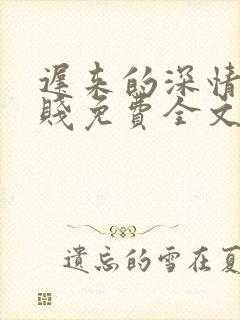 遲来的深情
賤免費全文
遺忘的雪在夏